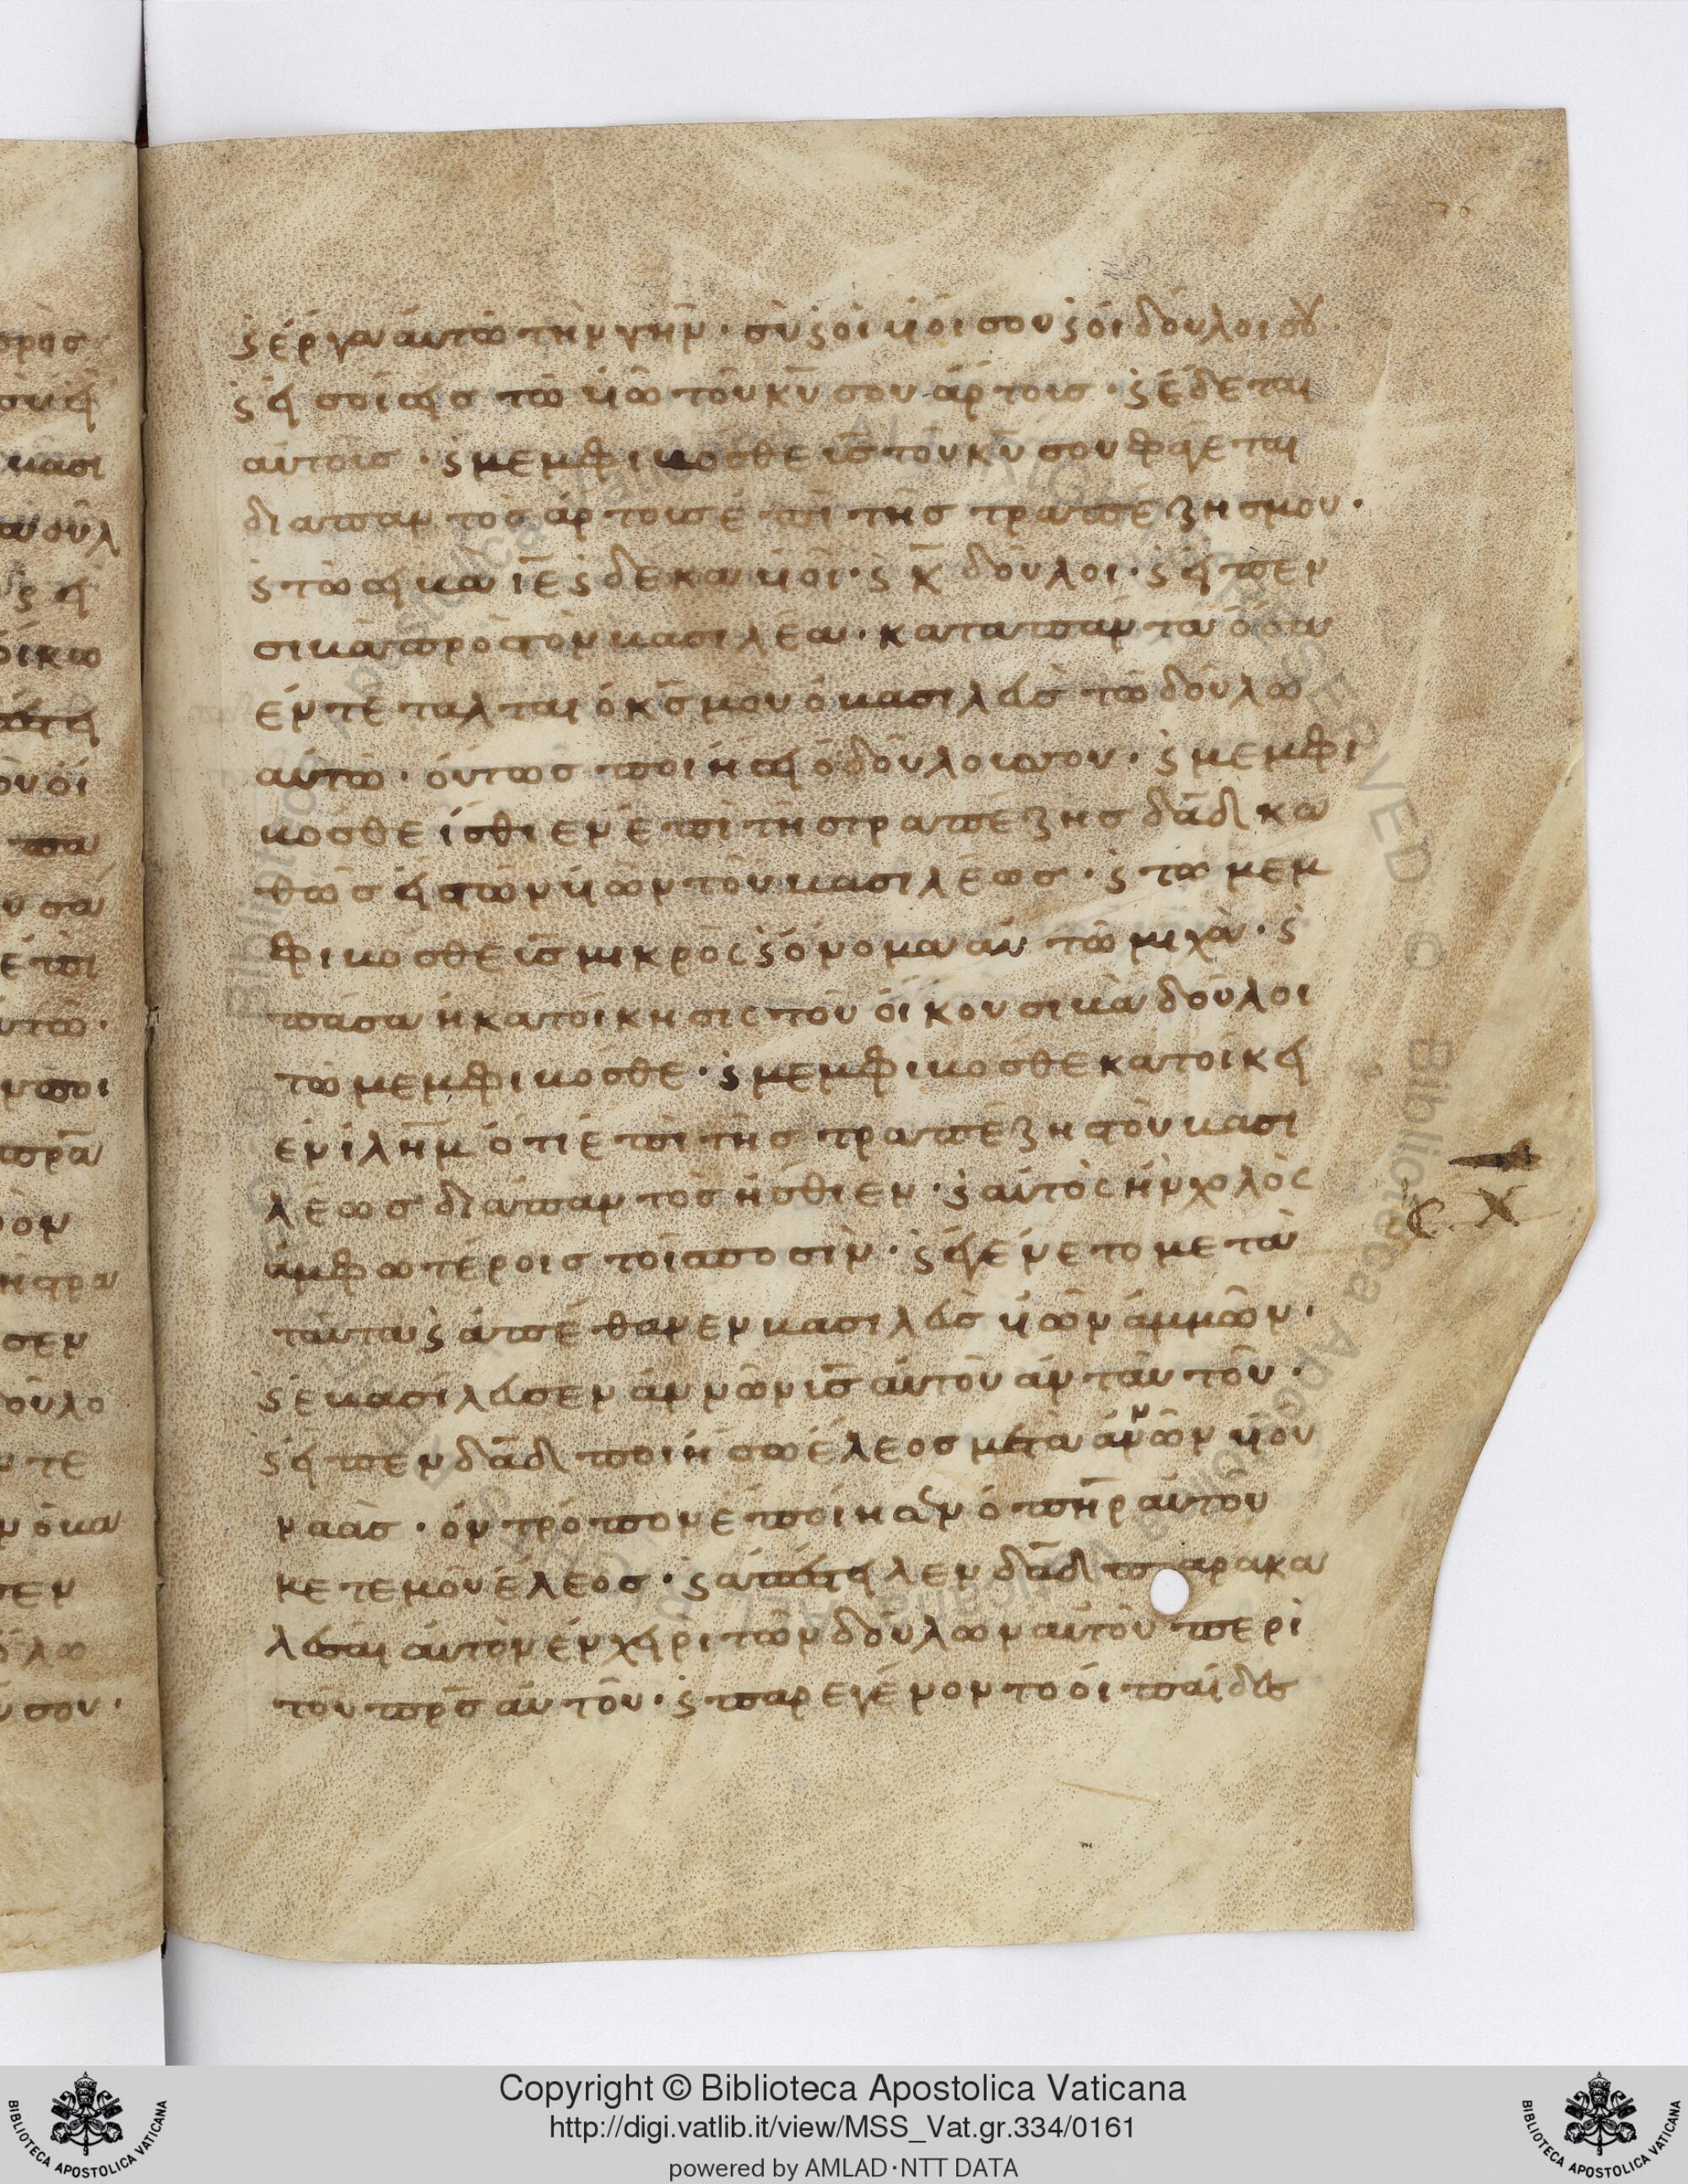 ϛ ἐργᾶ αὐτῶ τὴν γῆν· σὺ ϛ οἱ υἱοί σου ϛ οἱ δοῦλοι σου·
ϛ εἰσοίσεις τῶ υἱῶ τοῦ κῡ σου ἄρτους· ϛ ἔδεται
αὐτοὺς· ϛ μεμφιβόσθε υἱς τοῦ κῡ σου φάγεται
διαπαντὸς ἄρτους ἐπὶ τῆς τραπέζης μου·
ϛ τῶ σιβὰ ιε̄ ϛ δέκα υἱοὶ· ϛ κ̄ δοῦλοι· ϛ εἶπεν
σιβὰ πρὸς τὸν βασιλέα· κατα πάντα ὅσα
ἐντέταλται ὁ κς̄ μου ὁ βασιλεὺς τῶ δούλω
αὐτῶ· οὕτως ποιήσει ὁ δοῦλος σου· ϛ μεμφι
βόσθε ἴσθιεν ἐπὶ τῆς τραπέζης δᾱδ κα
θὼς εἷς τῶν υἱῶν τοῦ βασιλέως· ϛ τῶ μεμ
φιβόσθε υἱς μικρὸς ϛ ὄνομα αὐτῶ μιχὰ· ϛ
πᾶσα ἡ κατοίκησις τοῦ οἴκου σιβὰ δοῦλοι
τῶ μεμφιβόσθε· ϛ μεμφιβόσθε κατοίκει
ἐν ιλη̄μ ὅτι ἐπὶ τῆς τραπέζης τοῦ βασι
λέως διαπαντὸς ἤσθιεν· ϛ αὐτὸς ἦν χολὸς
ἀμφωτέροις τοῖς ποσὶν· ϛ ἐγένετο μετὰ
ταῦτα ϛ ἀπέθανεν βασιλεὺς υἱῶν ἀμμῶν·
ϛ ἐβασίλευσεν ἀννῶν υἱς αὐτοῦ ἀντ αὐτοῦ·
ϛ εἶπεν δᾱδ ποιήσω ἔλεος μετὰ ἀννῶν υἱοῦ
ναὰς· ὃν τρόπον ἐποίησεν ὁ πη̄ρ αὐτοῦ
μετεμοῦ ἔλεος· ϛ ἀπέστειλεν δᾱδ παρακα
λέσαι αὐτὸν ἐν χειρὶ τῶν δούλων αὐτοῦ περὶ
τοῦ πρς̄ αὐτοῦ· ϛ παρεγένοντο οἱ παῖδες
C. X
Copyright © Biblioteca Apostolica Vaticana
http://digi.vatlib.it/view/MSS_Vat.gr.334/0161
powered by AMLAD·NTT DATA